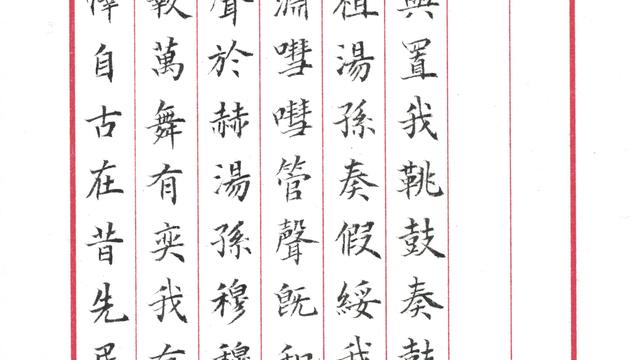 與置我鞉鼓奏鼓
祖湯孫奏假綏我
淵嘒嘒管聲既和
聲於赫湯孫穆穆
斁萬舞有奕我有
懌自古在昔先民